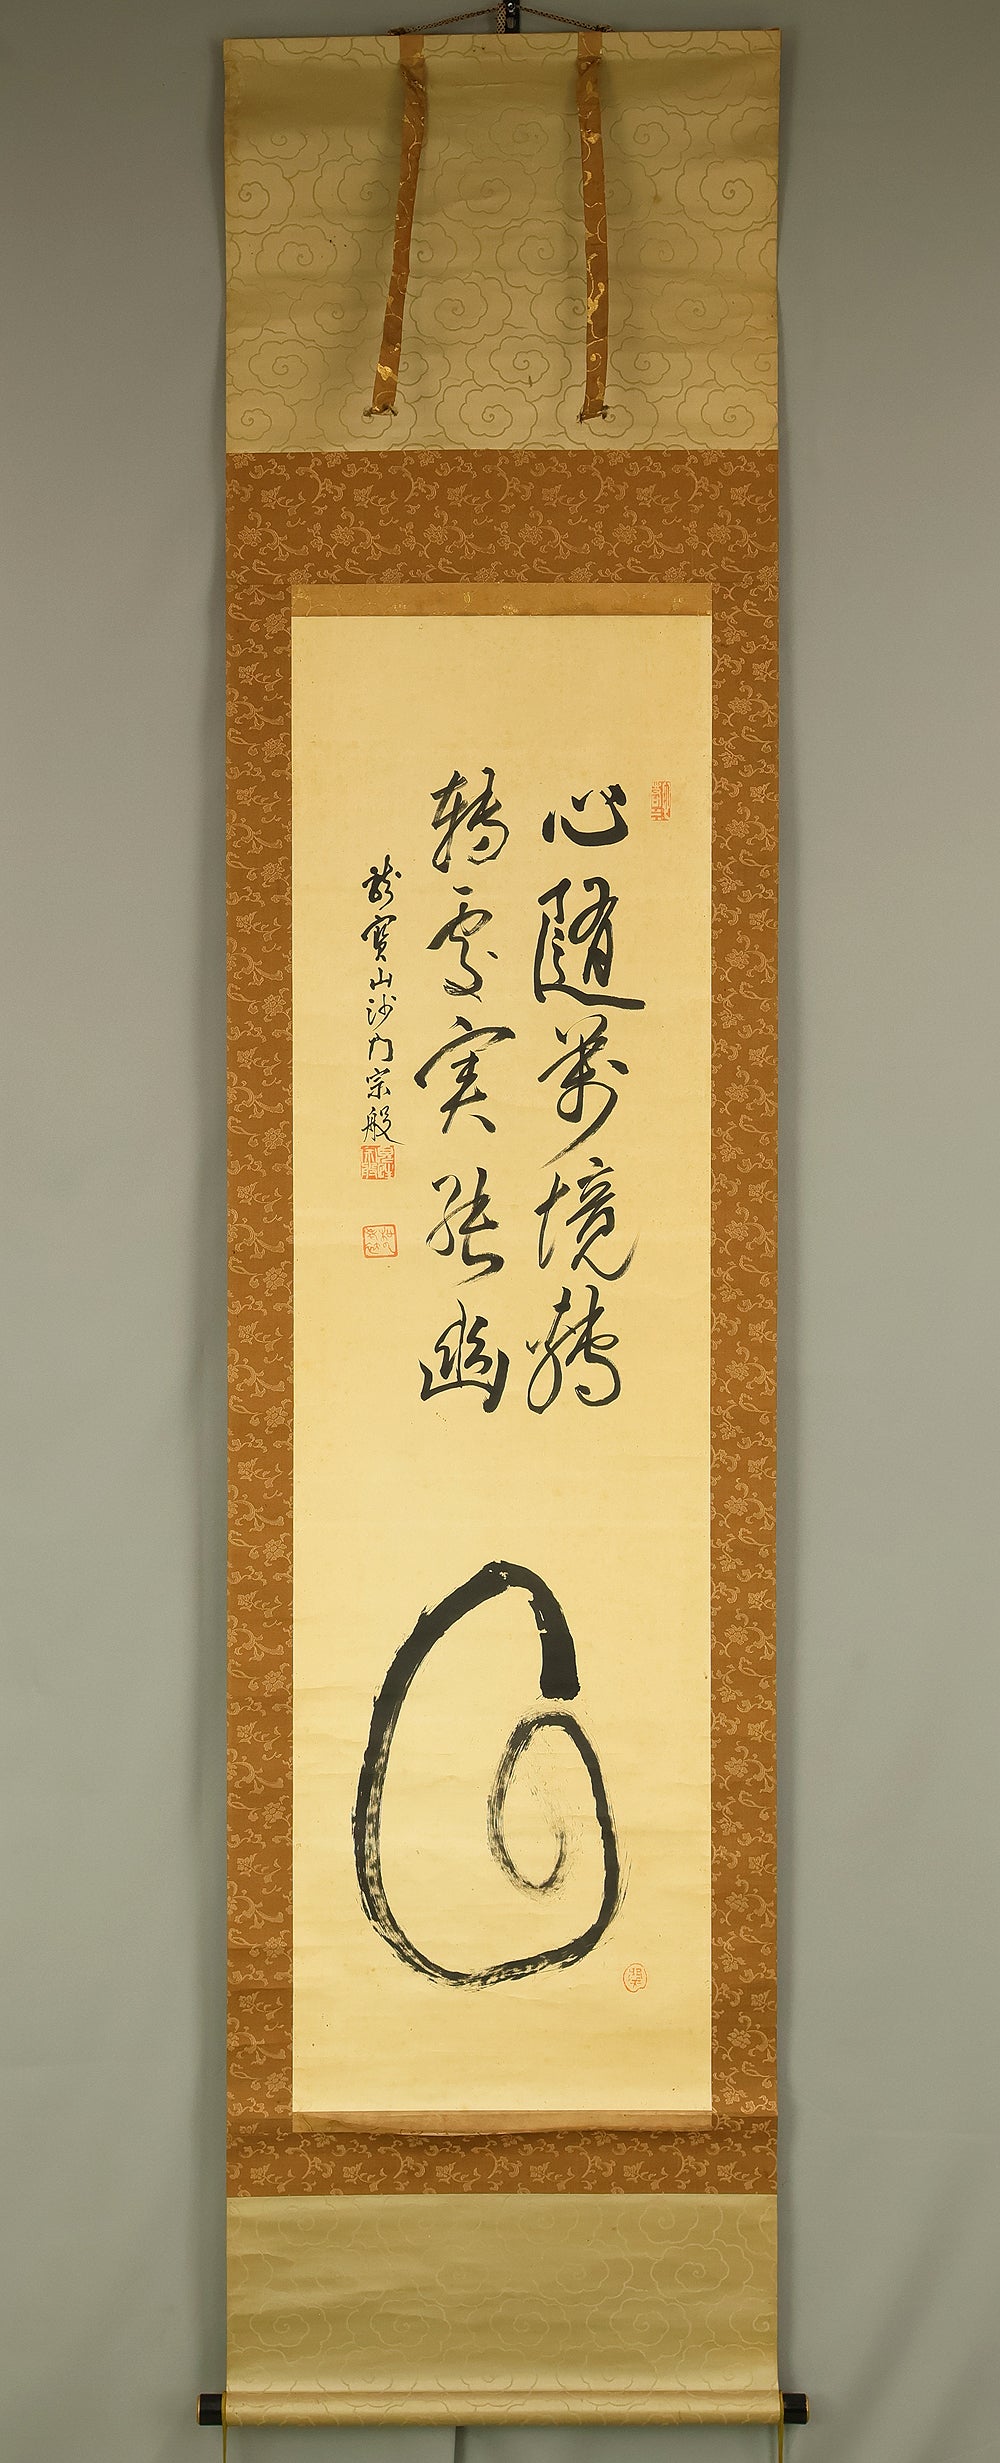 心隨萬境轉
轉處実能幽
龍寶山沙門宗般